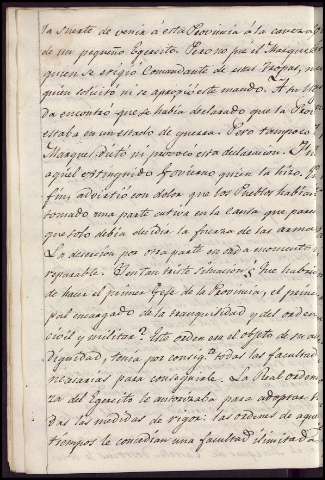 la suerte de venir á esta Provincia á la caveza
de un pequeño Egercito. Pero no fue el Marques
quien se erigió Comandante de esas tropas, ni
quien solicitó ni se apropió este mando. A su
da encontró que se habia declarado que la Pro
estaba en un estado de guerra. Pero tampoco
Marques dictó ni provocó esta declaracion.
aquel extinguido Govierno quien la hizo.
fin, advirtió con dolor, que los Pueblos habian
tomado una parte activa en la causa que pare
que solo debia decidir la fuerza de las armas
La desercion por otra parte en cada momento
reparable. En tan triste situacion ¿que habria
de hacer el primer Gefe de la Provincia, el prin
pal encargado de la tranquilidad y del orden
civil y militar? Este orden era el objeto de su
dignidad, tenia por consig. todas las facultad
necesarias para conseguirle. La Real orden
za del Egercito le autorizaba para adoptar to
das las medidas de rigor: las ordenes de aque
tiempos le concedian una facultad ilimitada